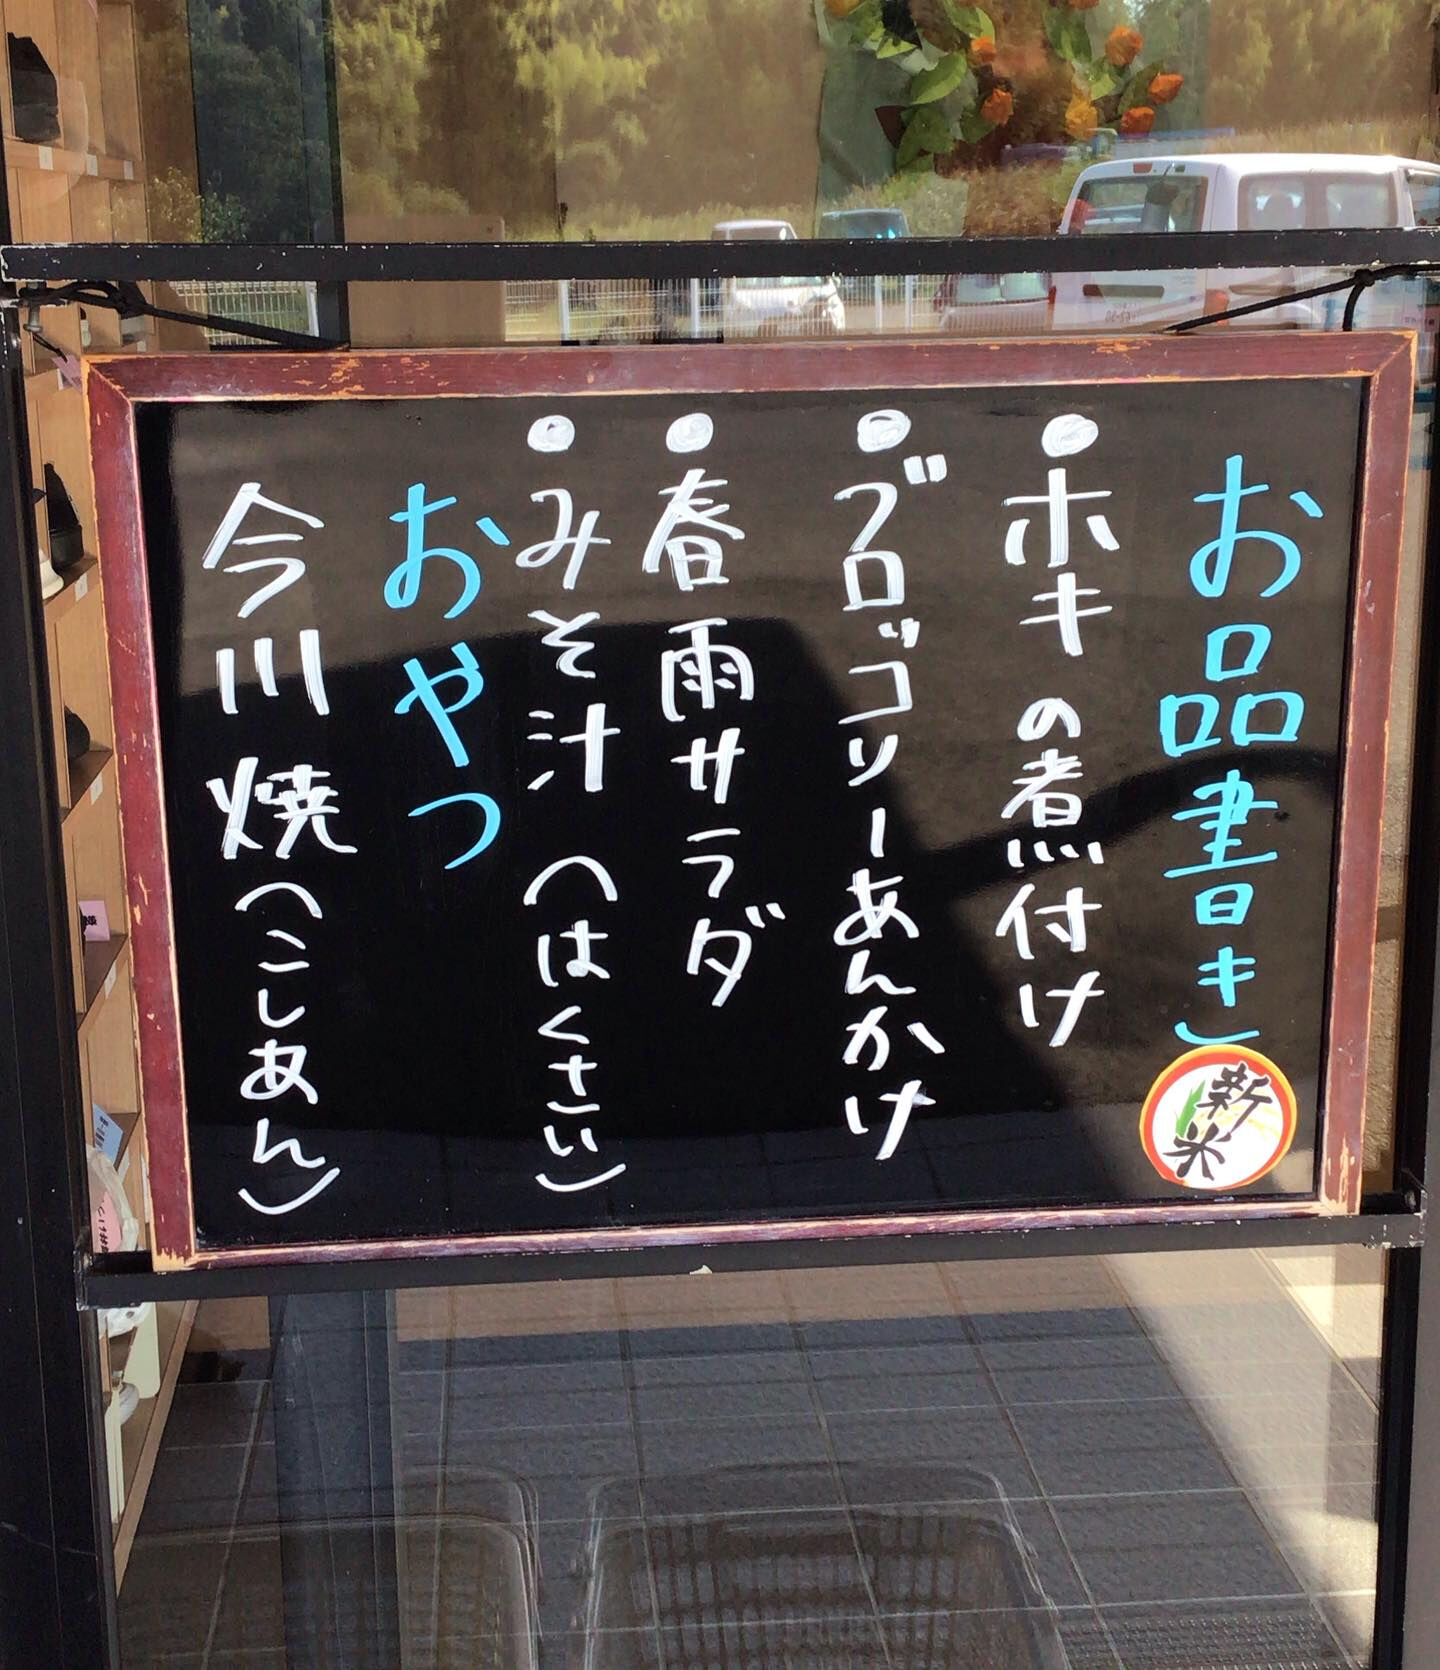 お品書き
新米
ホキの煮付け
ブロッコリーあんかけ
春雨サラダ
みそ汁(はくさい)
おやつ
今川焼(こしあん)